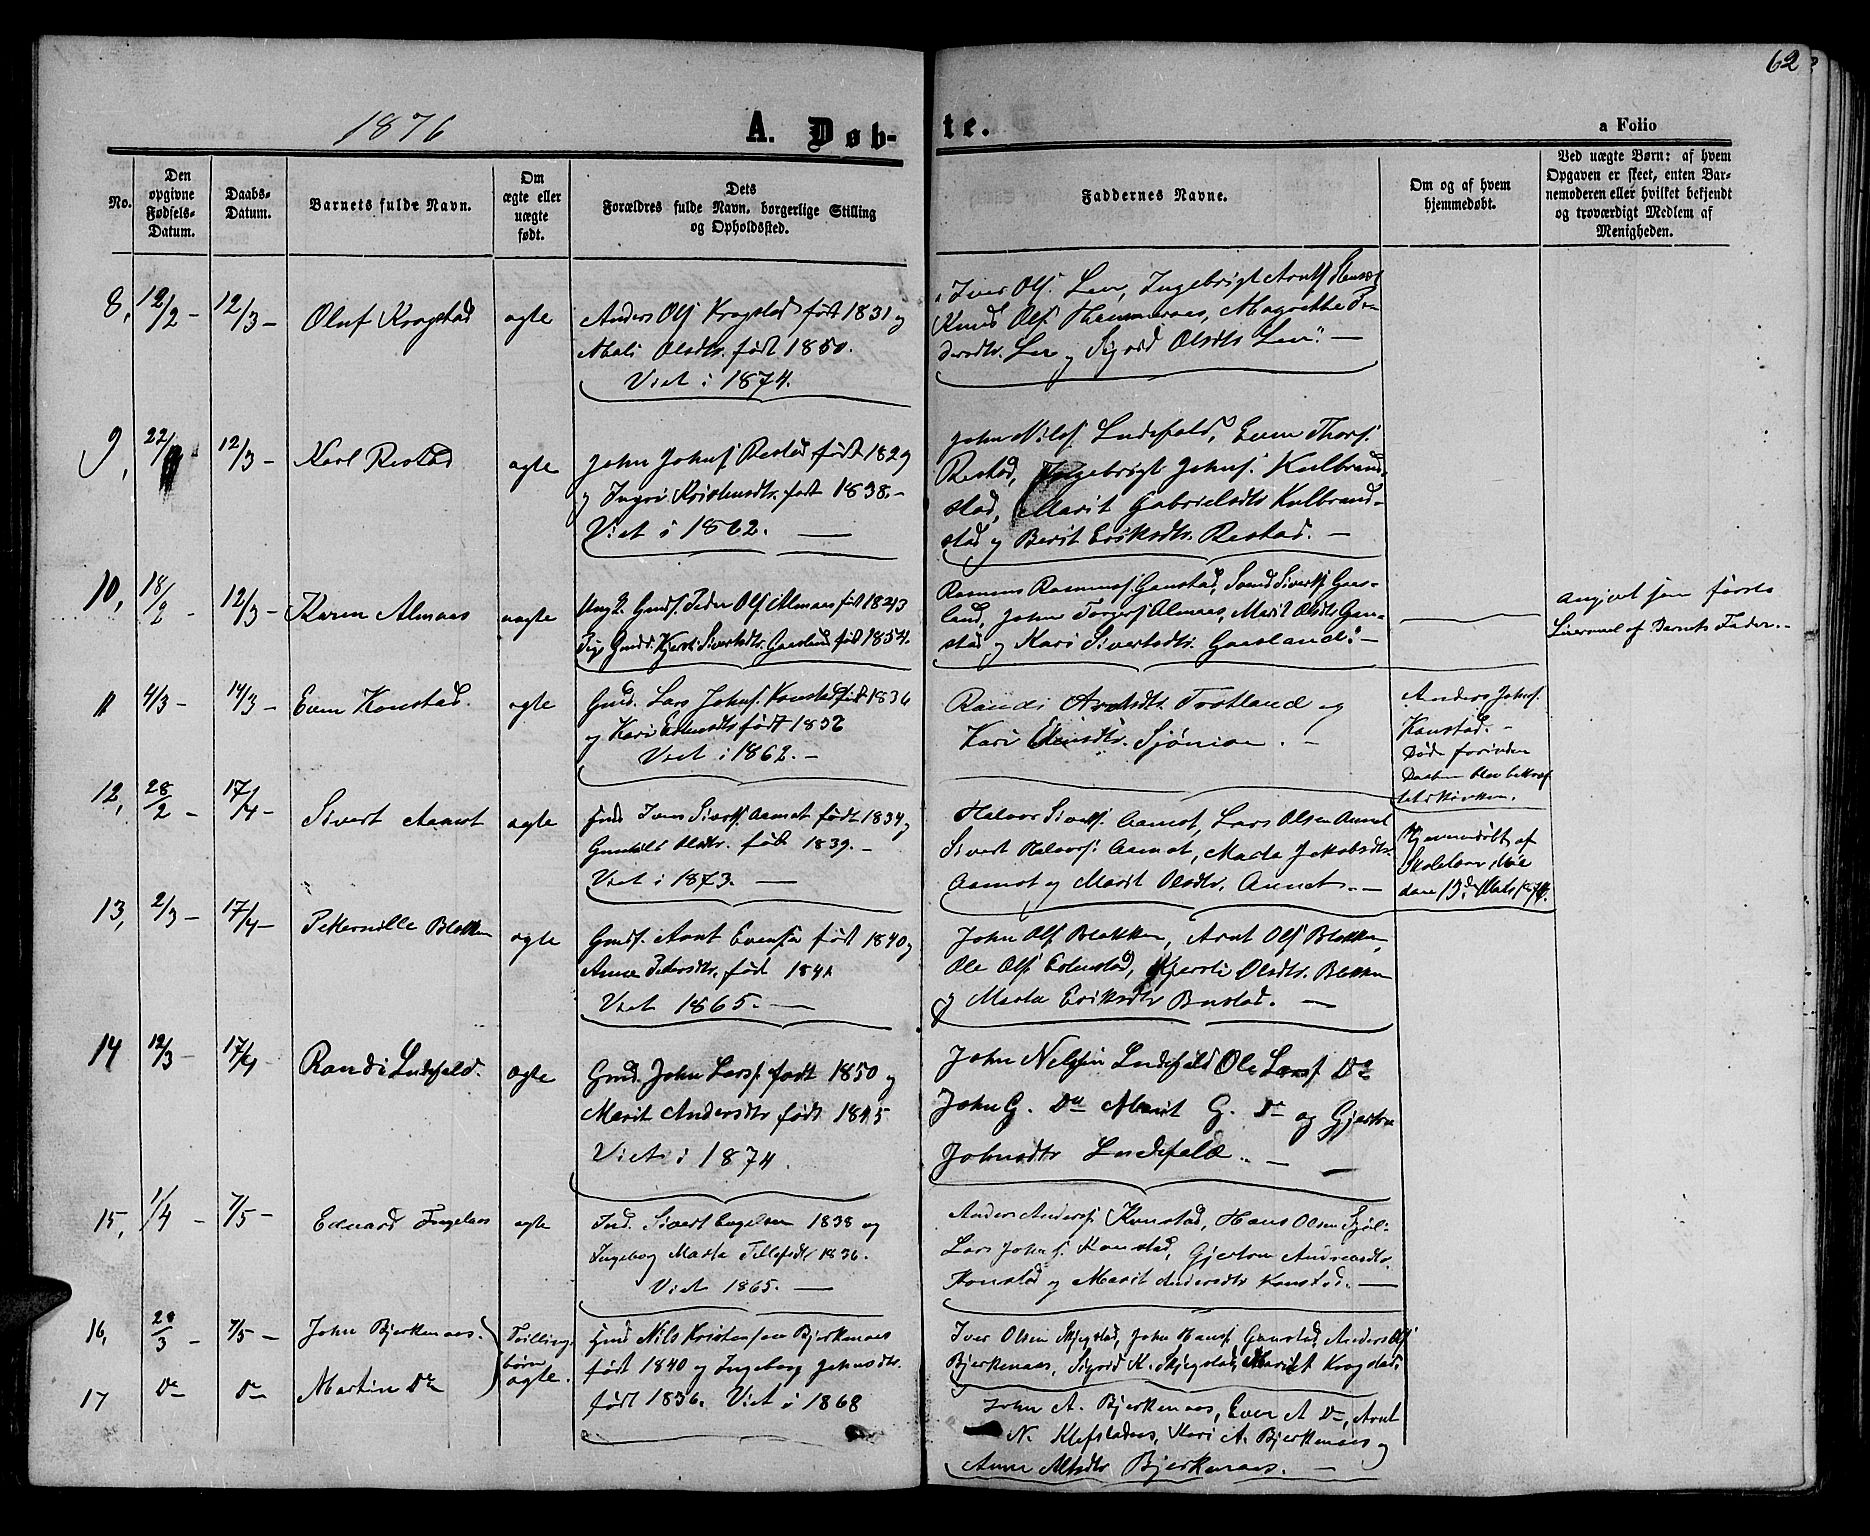 62
1876
A. Døb-
te.
a Folio
No.
Den opgivne Fødsels-Datum.
Daabs-Datum.
Barnets fulde Navn.
Om ægte eller uægte født.
Dets Forældres fulde Navn, borgerlige Stilling og Opholdssted.
Faddernes Navne.
Om og af hvem hjemmedøbt.
Ved uægte Børn: af hvem Opgaven er skeet, enten Bar-nemoderen eller hvilket bekjendt og troværdigt Medlem af Menigheden.
8, 12/2 - 12/3 - Oluf Krogstad ægte
Anders Ols. Krogstad født 1831 og
Mali Olsdtr. født 1850.
Viet i 1874.
Iver Ols. Len, Ingebrigt Arnts.
Knud Ols. Hammernæs, Magrethe Pe-
dersdtr. Len og Sigrid Olsdtr Len. —
9, 22/ 12/3 - Karl Restad ægte
John Johns. Restad født 1829
og Ingri Kristensdtr. født 1838. -
Viet i 1862. —
John Nils. Indefald, Even Thors.
Restad, Ingebrigt Johns. Kulbrand-
stad, Marit Gabrielsdtr Kulbrand-
stad og Berit Eriksdtr. Restad. -
10, 18/2 12/3 - Karen Almaas uægte
Ungk. Gmds. Peder Ols. Almaas født 1843
Pige Gmdr. Kjersti Sivertsdtr. Gaasland født 1854.
Rasmus Rasmuss. Genstad, Svend Siverts. Gaas-
land, John Torgers. Almaas, Marit Olsdtr Gen-
stad og Kari Sivertsdtr. Gaasland. -
angivet som første
Leiermaal af Barnets Fader. -
11 4/3 - 14/3 - Even Konstad. ægte
Gmd. Lars Johns. Konstad født 1836
og Kari Estensdtr født 1832
Viet i 1862. -
Randi Arntsdtr. Trotland og
Kari Sjönian. -
Anders Johns.
Konstad. -
Døde forinden
Daaben blev bekræf
tet i Kirken.
12, 28/2 - 17/4 - Sivert Aamot ægte
Gmd. Iver Siverts. Aamot født 1834 og
Gunhild Olsdtr. født 1839. -
Viet i 1873. —
Halvor Siverts. Aamot, Lars Olsen Aamot
Sivert Halvors. Aamot, Marta Jakobsdtr.
Aamot og Marit Olsdtr. Aamot. -
Hjemmedøbt af
Skolelærer Moe
den 13de Marts 1876.
13, 2/3 - 17/4 - Petternille Blekken ægte
Gmds. Arnt Evensen født 1840 og
Anne Pedersdtr. født 1841
Viet 1865. —
John Ols. Blekken, Arnt Ols. Blekken,
Ole Ols. Estenstad, Kjersti Olsdtr. Blekken
og Marta Eriksdtr Bustad. —
14 12/3 - 17/4 - Randi Indefald. ægte
Gmd. John Larss. født 1850 og
Marit Andersdtr født 1845
Viet i 1874.
John Nelsen Indefald Ole Larss. Do
John G. Do Marit G. Do og Gjertru
Johnsdtr Indefald. —
15, 1/4 - 7/5 - Edvard Ingelaas ægte
Ind. Sivert Engelsen 1838 og
Ingebog Marta Tillefsdtr 1836.
Viet 1865. —
Anders Anderss. Konstad, Hans Olsen Sjöl.
Lars Johns. Konstad, Gjertru Andreasdtr.
Konstad og Marit Andersdtr Konstad. —
16, 28/3 - 7/5 - John Bjerkenaas. Tvilling-
børn
ægte.
Gmd Nils Kristensen Bjerkenaas
født 1840 og Ingeborg Johnsdtr.
født 1836. Viet i 1868
Iver Olsen Skjegstad, John Hans. Genstad, Anders Ols.
Bjerkenaas, Sigrid K. Skjegstad, Marit Krogstad,
17 Do Do Martin Do
John A. Bjerkenaas, Even A Do, Arnt
N. Klefstadaas, Kari A. Bjerkenaas og
Anne Bjerkenaas. —